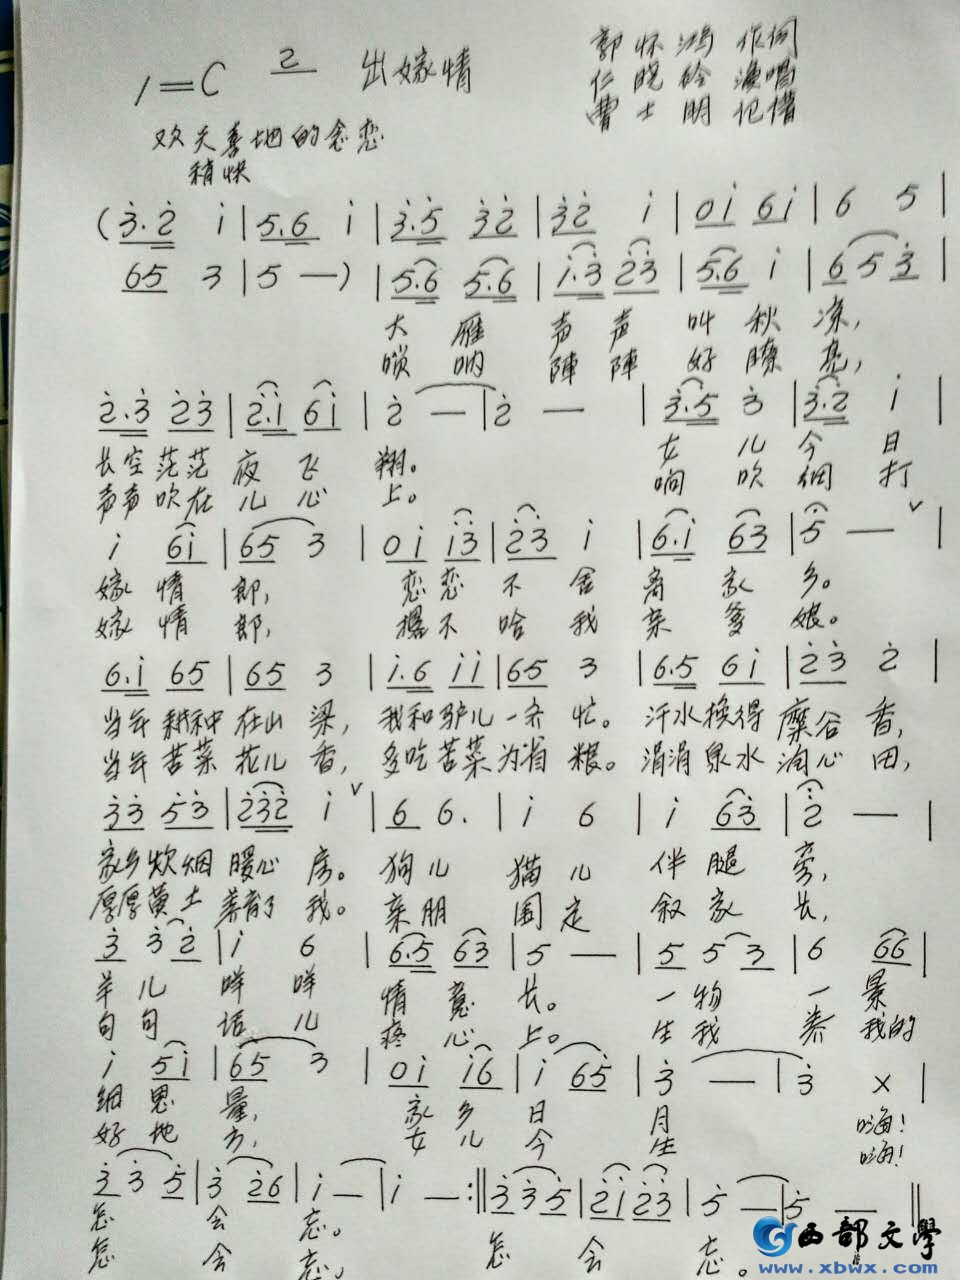 1=C 2 出嫁情
郭怀鸿 作词
仁晓砱 演唱
曹士明 记谱
欢天喜地的念恋
稍快
(3.2 i|5.6 i|3.5 32|32 i|0i 6i|6 5|
65 3|5 —)|5.6 5.6|i.3 23|5.6 i|6 5 3|
大雁声声叫秋凉,
唢呐阵阵好嘹亮,
2.3 23|2.i 6i|2 —|2 —|3.5 3|3.2 i|
长空茫茫夜飞翔。 女儿今日
声声吹在儿心上。 响吹细打
i 6i|65 3|0i i3|23 i|6.i 63|5 — ∨|
嫁情郎, 恋恋不舍离家乡。
嫁情郎, 撂不哈我亲爹娘。
6.i 65|65 3|i.6 ii|65 3|6.5 6i|23 2|
当年耕种在山梁,我和驴儿一齐忙。汗水换得糜谷香,
当年苦菜花儿香,多吃苦菜为省粮。涓涓泉水淌心田,
33 53|232 i ∨|6 6.|i 6|i 63|2 —|
家乡炊烟暖心房。狗儿猫儿伴腿旁,
厚厚黄土养育了我。亲朋围定叙家长,
3 32|i 6|6.5 63|5 —|5 5 3|6 66|
羊儿咩咩情意长。一物一景
句句话儿疼心上。生我养我的
i 5i|65 3|0i i6|i 65|3 —|3 X|
细思量, 家乡日月 嗨!
好地方, 女儿今生 嗨!
3 3 5|3 26|i —|i —:‖3 3 5|2i 23|5 —|5 —‖
怎会忘。 怎会忘。
怎会忘,
西部文学
www.xbwx.com